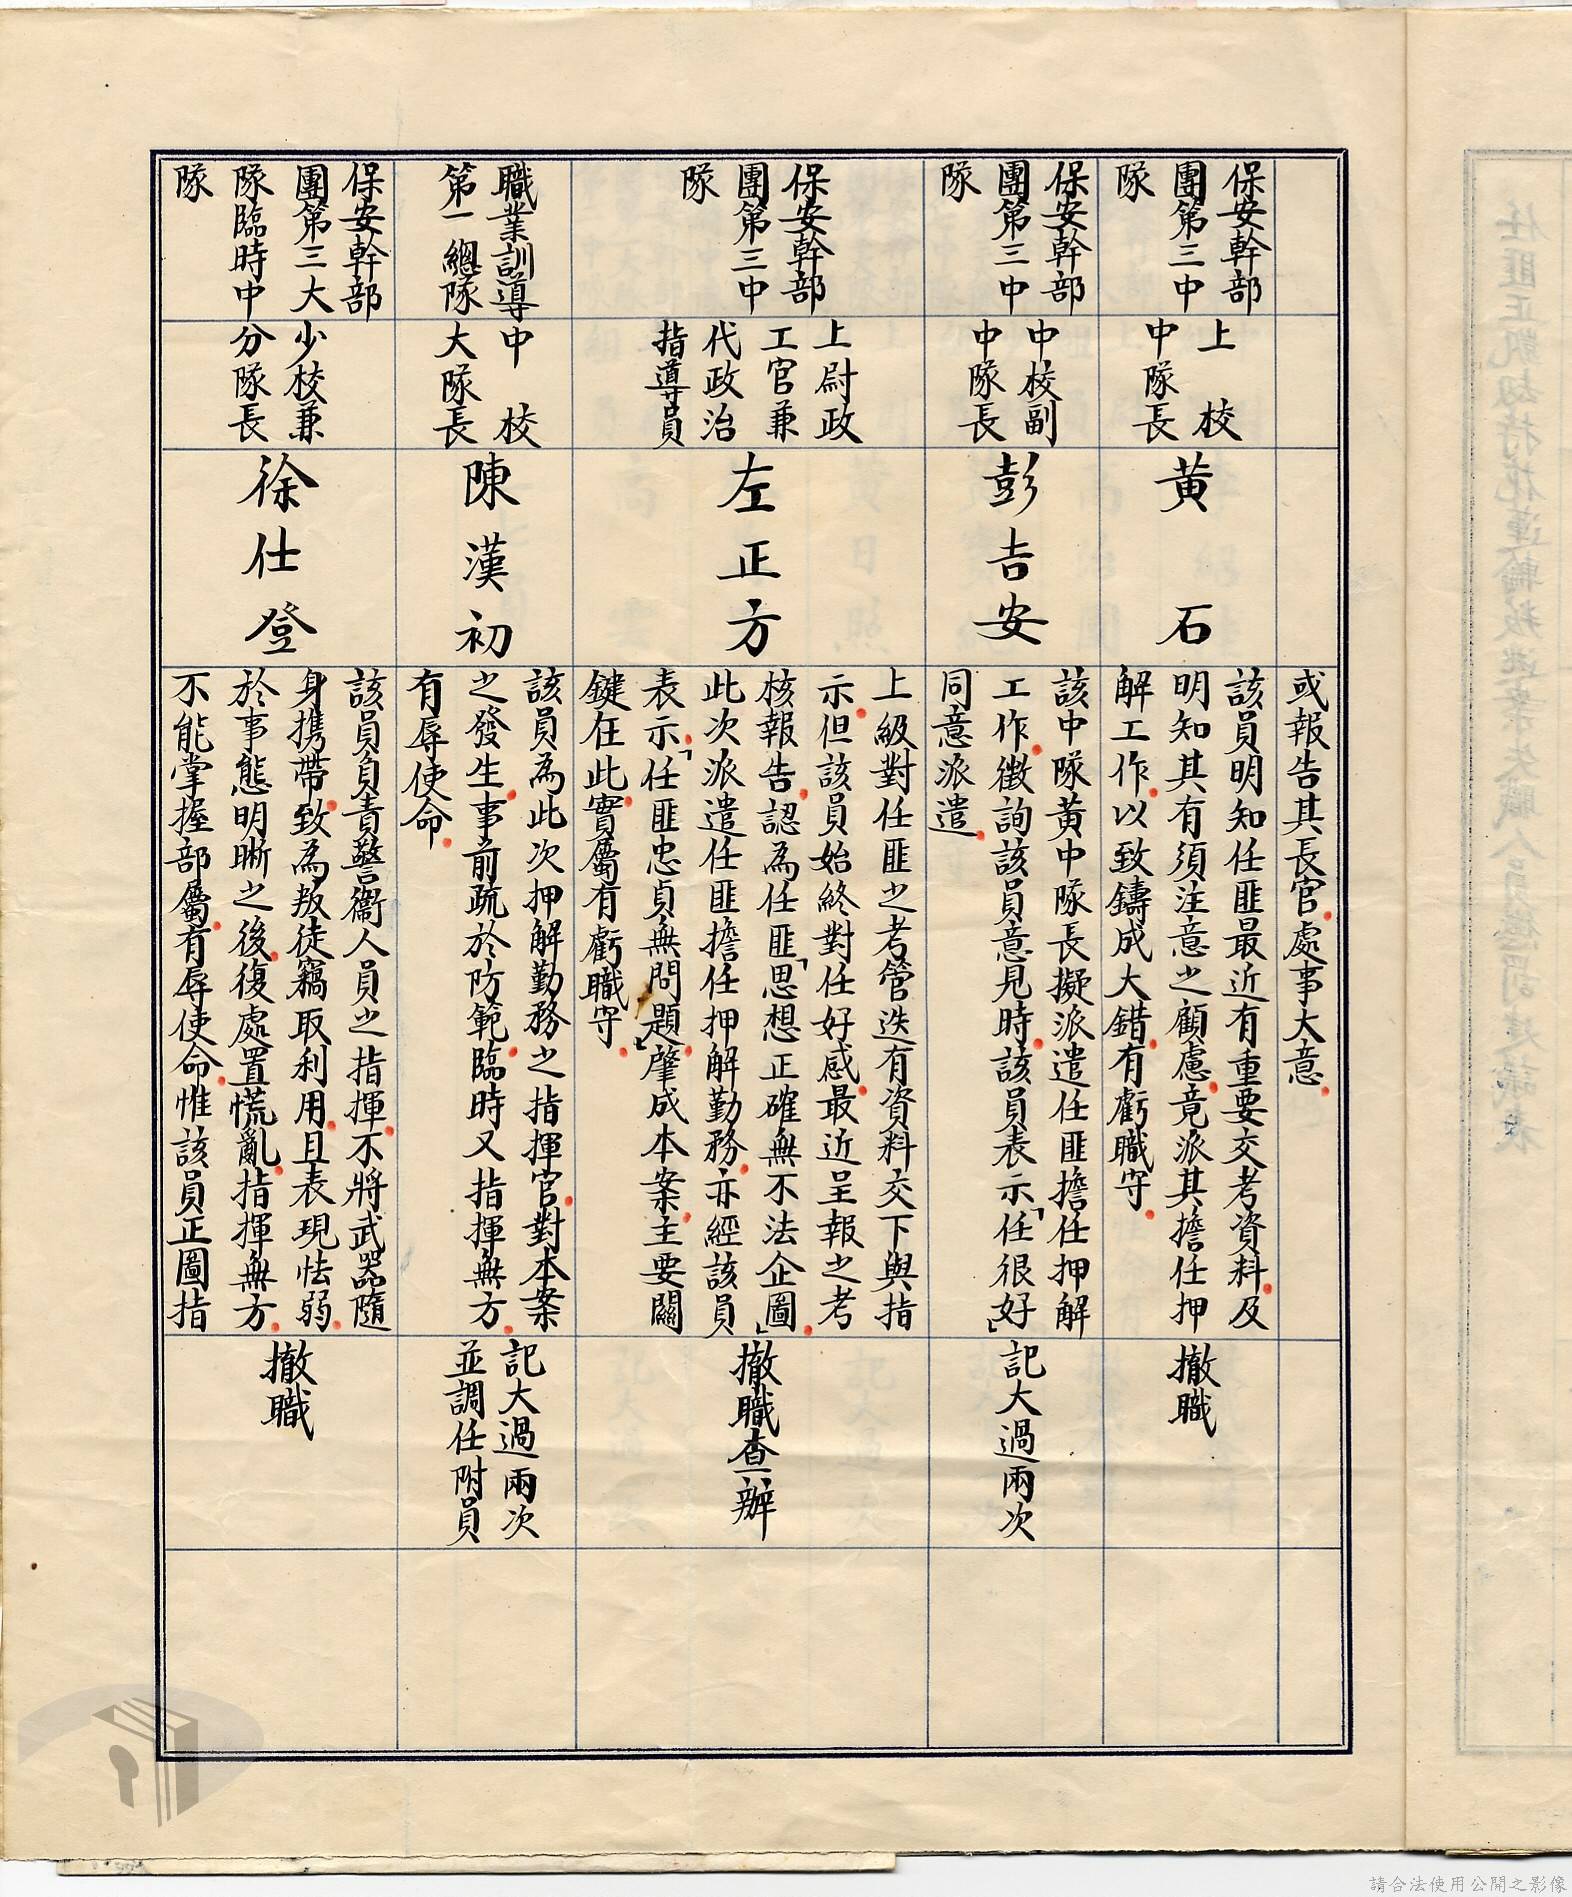 或報告其長官，處事大意。
保安幹部
團第三中
隊
上校
中隊長
黃石
該員明知任匪最近有重要交考資料，及
明知其有須注意之顧慮，竟派其擔任押
解工作，以致鑄成大錯，有虧職守。
撤職
保安幹部
團第三中
隊
中校副
中隊長
彭吉安
該中隊黃中隊長擬派遣任匪擔任押解
工作，徵詢該員意見時，該員表示「任很好」
同意派遣。
記大過兩次
保安幹部
團第三中
隊
上尉政
工官兼
代政治
指導員
左正方
上級對任匪之考管迭有資料交下與指
示，但該員始終對任好感，最近呈報之考
核報告，認為任匪「思想正確無不法企圖」，
此次派遣任匪擔任押解勤務，亦經該員
表示，「任匪忠貞無問題」，肇成本案，主要關
鍵在此，實屬有虧職守。
撤職查辦
職業訓導
第一總隊
中校
大隊長
陳漢初
該員為此次押解勤務之指揮官，對本案
之發生，事前疏於防範，臨時又指揮無方，
有辱使命。
記大過兩次
並調任附員
保安幹部
團第三大
隊臨時中
隊
少校兼
分隊長
徐仕登
該員負責警衞人員之指揮，不將武器隨
身携帶，致為叛徒竊取利用，且表現怯弱，
於事態明晰之後，復處置慌亂，指揮無方，
不能掌握部屬，有辱使命，惟該員正圖指
撤職
任匪正凱劫持花蓮輪叛逃案失職人員懲罰建議表
請合法使用公開之影像